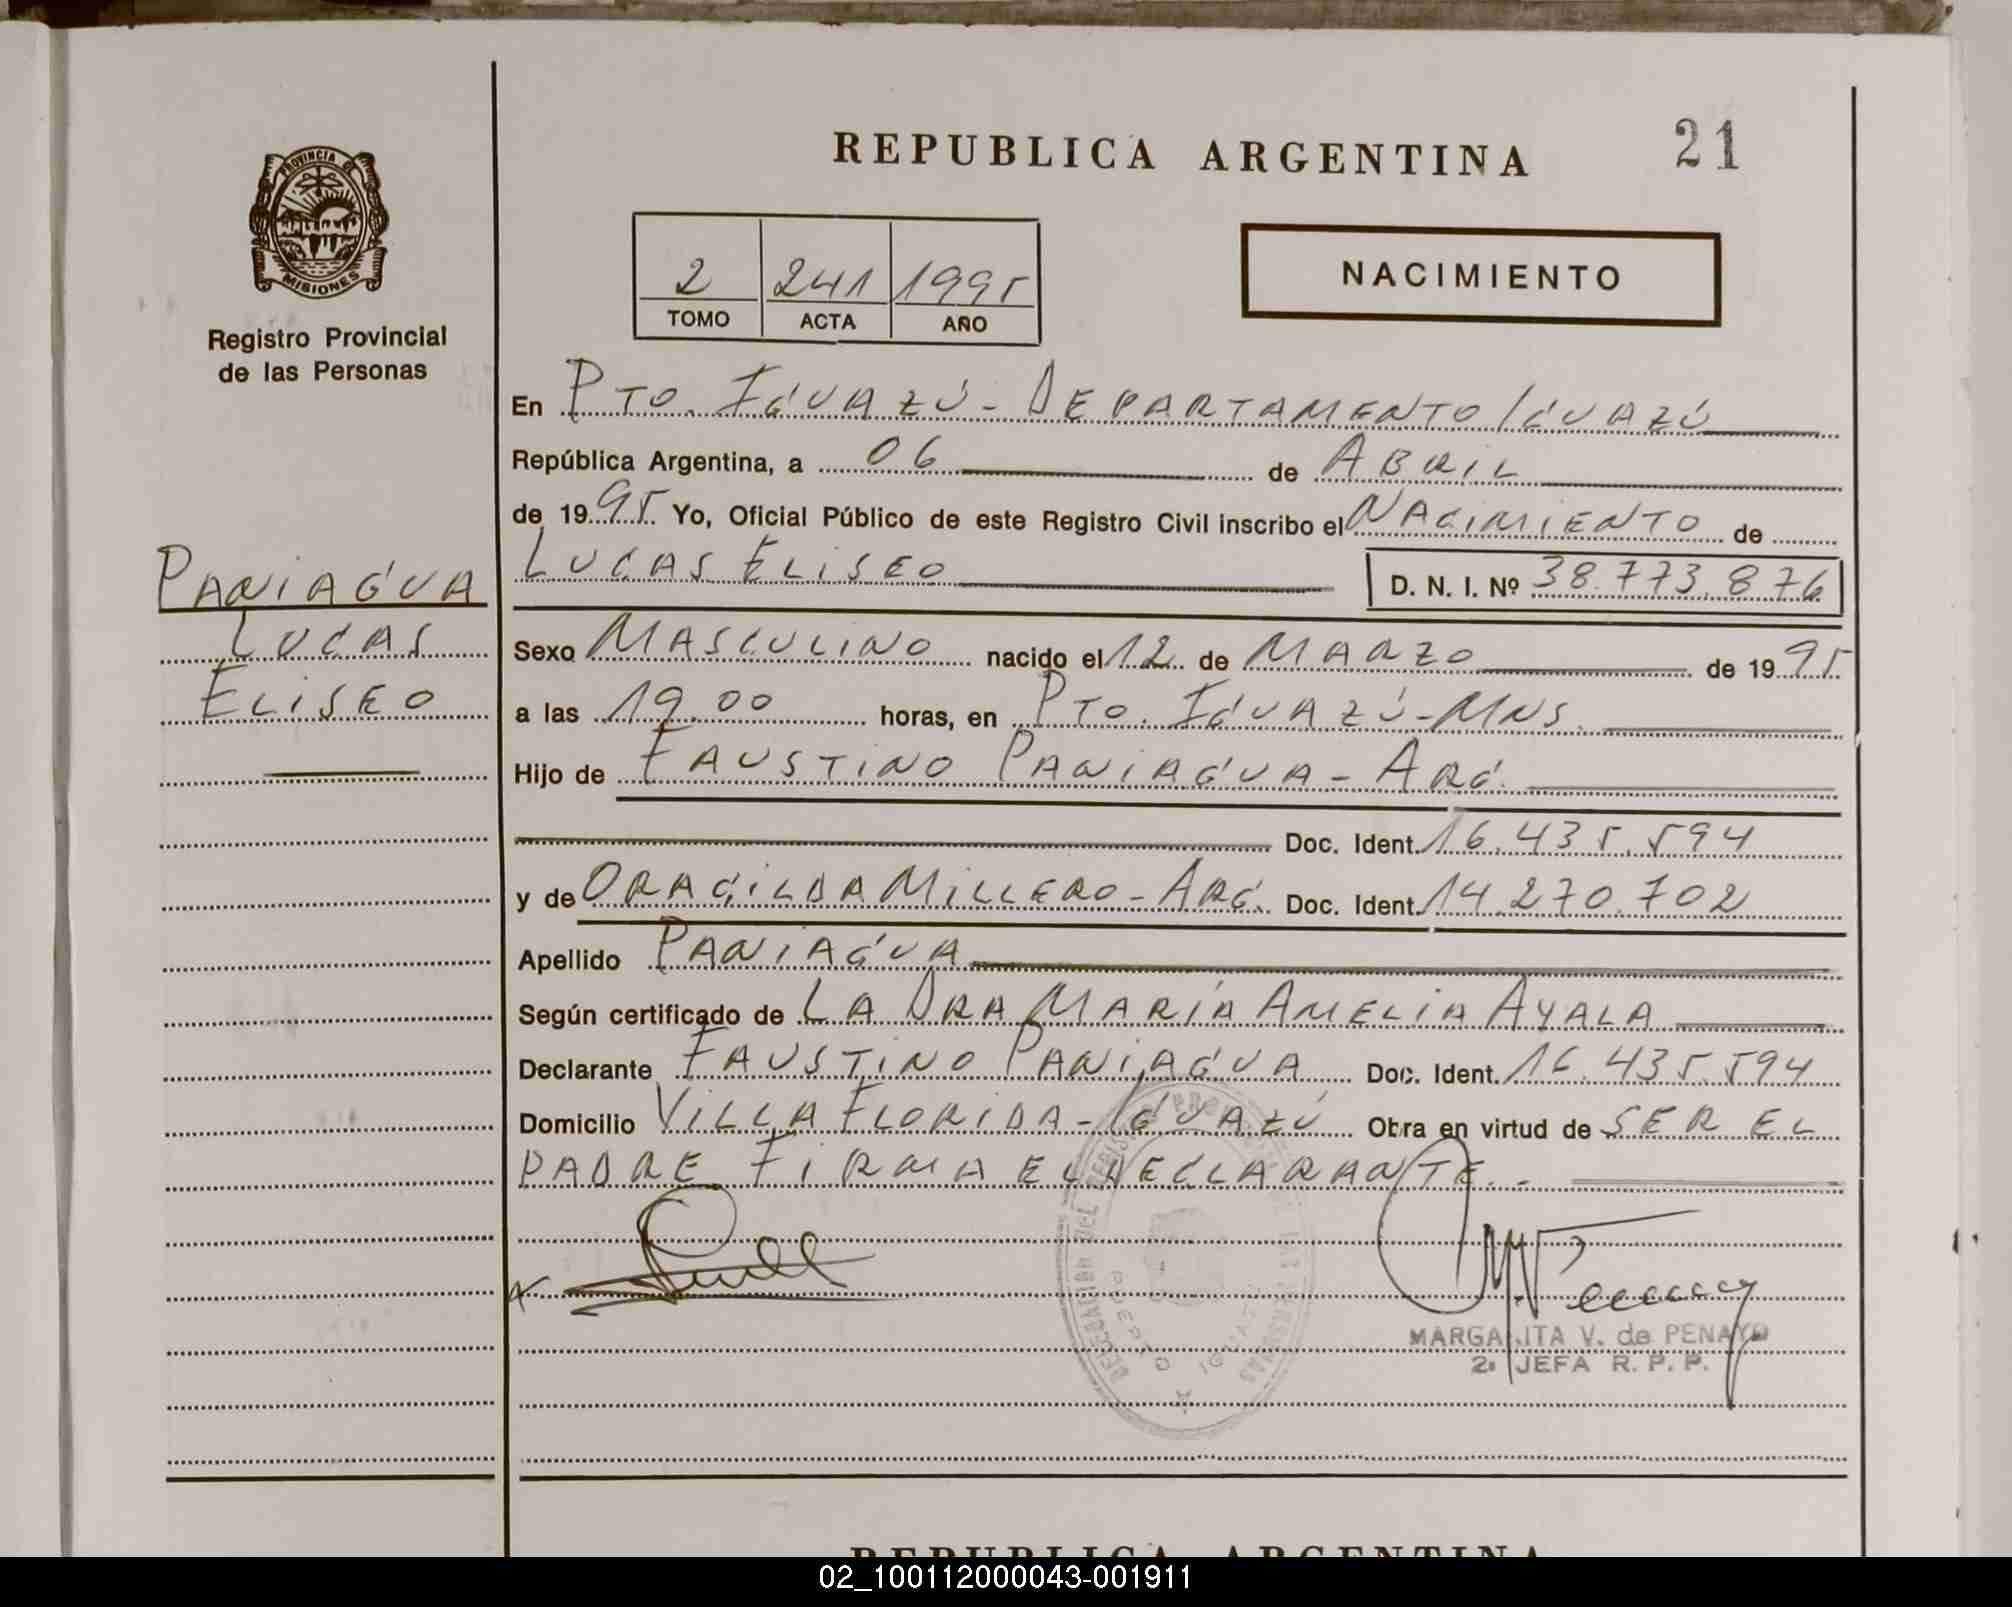 REPUBLICA ARGENTINA
21
PROVINCIA DE
MISIONES
Registro Provincial
de las Personas
2 241 1995
TOMO ACTA AÑO
NACIMIENTO
En PTO. IGUAZÚ - DEPARTAMENTO IGUAZÚ
República Argentina, a 06 de ABRIL
de 1995 Yo, Oficial Público de este Registro Civil inscribo el NACIMIENTO de
LUCAS ELISEO D. N. I. Nº 38.773.876
PANIAGUA
LUCAS
ELISEO
Sexo MASCULINO nacido el 12 de MARZO de 1995
a las 19.00 horas, en PTO. IGUAZÚ - MNS.
Hijo de FAUSTINO PANIAGUA - ARG.
Doc. Ident. 16.435.594
y de ORAGILDA MILLERO - ARG. Doc. Ident. 14.270.702
Apellido PANIAGUA
Según certificado de LA DRA MARÍA AMELIA AYALA
Declarante FAUSTINO PANIAGUA Doc. Ident. 16.435.594
Domicilio VILLA FLORIDA - IGUAZÚ Obra en virtud de SER EL
PADRE FIRMA EL DECLARANTE.-
DELEGACION DEL REGISTRO PROVINCIAL DE LAS PERSONAS
PUERTO IGUAZU
MARGARITA V. de PENAYO
2ª JEFA R. P. P.
REPUBLICA ARGENTINA
02_100112000043-001911